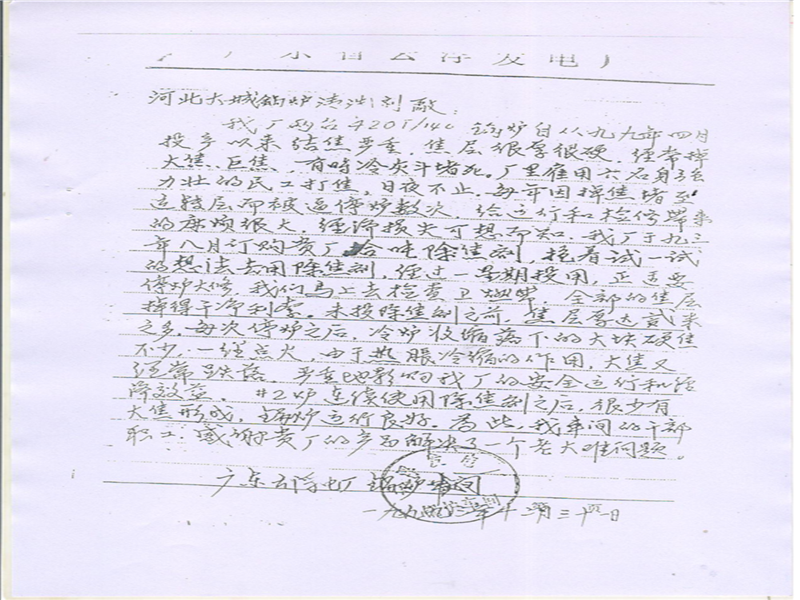 广东省云浮发电厂
河北大城锅炉清洁剂厂:
我厂两台420T/140锅炉自从九九年四月
投产以来结焦严重,焦层很厚很硬,经常掉
大焦、巨焦,有时冷灰斗堵死。厂里雇用六名身强
力壮的民工打焦,日夜不止,每年因掉焦堵至
运转层而被逼停炉数次,给运行和检修带来
的麻烦很大,经济损失可想而知。我厂于九三
年八月订购贵厂吨除焦剂,抱着试一试
的想法去用除焦剂,经过一星期投用,正适要
停炉大修,我们马上去检查卫燃带,全部的焦层
掉得干净利索。未投除焦剂之前,焦层厚达贰米
之多,每次停炉之后,冷炉收缩落下的大块硬焦
不少,一经点火,由于热胀冷缩的作用,大焦又
经常跌落,严重地影响我厂的安全运行和经
济效益。#2炉连续使用除焦剂之后,很少有
大焦形成,锅炉运行良好。为此,我车间的干部
职工,感谢贵厂的产品解决了一个老大难问题。
广东云浮电厂锅炉车间
一九九三年十二月三十一日